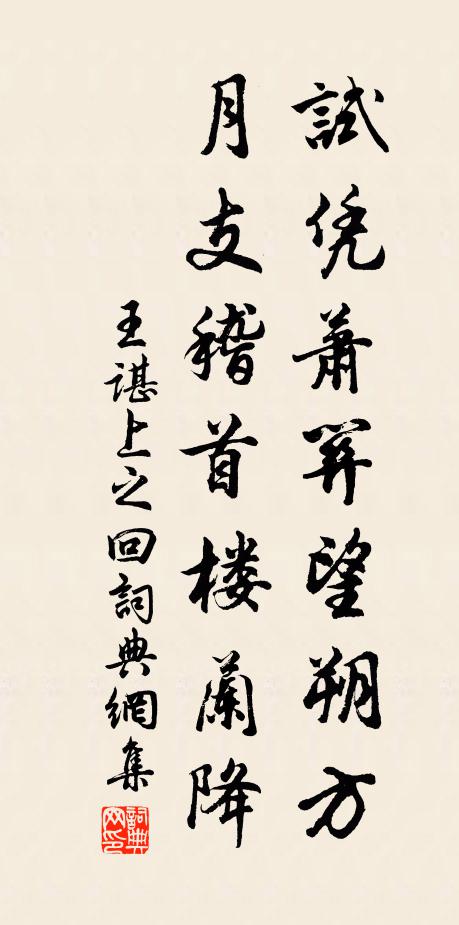 試凭蕭關望朔方
月支稽首楼蘭降
王諶上之回詞典網集
詞典网印